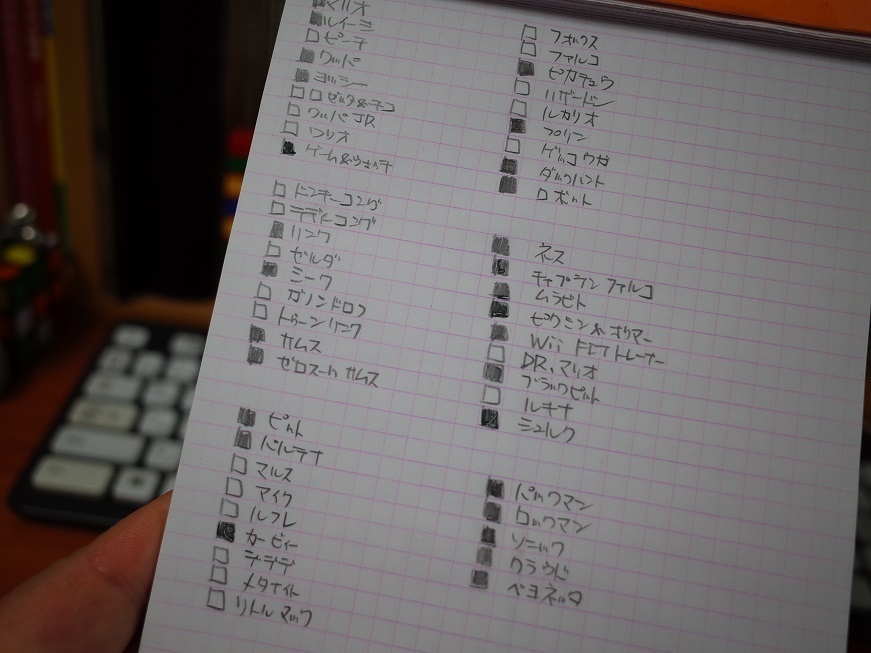 マリオ
ルイージ
ピーチ
クッパ
ヨッシー
ロゼッタ&チコ
クッパJR
ワリオ
ゲーム&ウォッチ
ドンキーコング
ディディーコング
リンク
ゼルダ
シーク
ガノンドロフ
トゥーンリンク
サムス
ゼロスーツサムス
ピット
パルテナ
マルス
アイク
ルフレ
カービィー
デデデ
メタナイト
リトルマック
フォックス
ファルコ
ピカチュウ
リザードン
ルカリオ
プリン
ゲッコウガ
ダックハント
ロボット
ネス
キャプテンファルコ
ムラビト
ピクミン&オリマー
Wii FITトレーナー
DR.マリオ
ブラックピット
ルキナ
シュルク
パックマン
ロックマン
ソニック
クラウド
ベヨネッタ